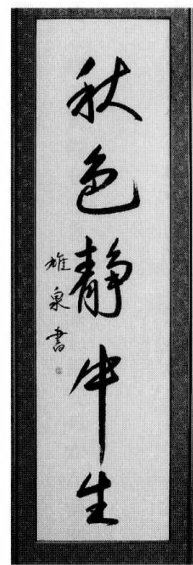 秋色静中生
雄泉書